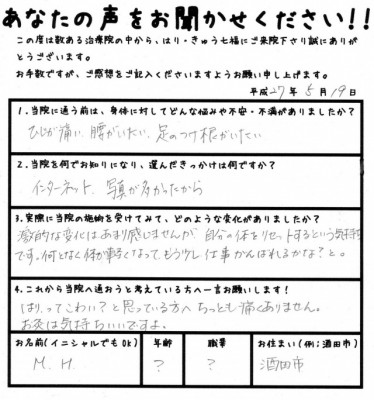 あなたの声をお聞かせください!!
この度は数ある治療院の中から、はり・きゅう七福にご来院下さり誠にありが
とうございます。
お手数ですが、ご感想をご記入くださいますようお願い申し上げます。
平成27年 5月 19日
1.当院に通う前は、身体に対してどんな悩みや不安・不満がありましたか?
ひじが痛い、腰がいたい、足のつけ根がいたい
2.当院を何でお知りになり、選んだきっかけは何ですか?
インターネット、写真が多かったから
3.実際に当院の施術を受けてみて、どのような変化がありましたか?
激的な変化はあまり感じませんが 自分の体をリセットするという気持ち
です。何となく体が軽くなって、もう少し仕事がんばれるかな?と。
4.これから当院へ通おうと考えている方へ一言お願いします!
はりってこわい?と思っている方へ ちっとも痛くありません。
お灸は気持ちいいですよ。
お名前(イニシャルでもOK) 年齢 職業 お住まい(例:酒田市)
M.H. ? ? 酒田市